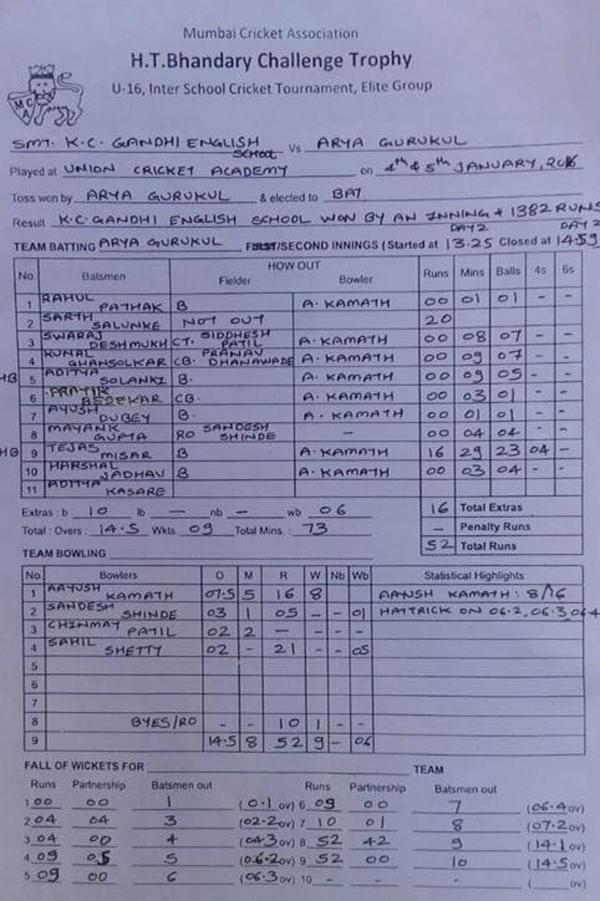 Mumbai Cricket Association
H.T.Bhandary Challenge Trophy
U-16, Inter School Cricket Tournament, Elite Group
MCA
SMT. K.C. GANDHI ENGLISH SCHOOL Vs ARYA GURUKUL
Played at UNION CRICKET ACADEMY on 4th & 5th JANUARY, 2016
Toss won by ARYA GURUKUL & elected to BAT
Result K.C. GANDHI ENGLISH SCHOOL WON BY AN INNING + 1382 RUNS
DAY 2 DAY 2
TEAM BATTING ARYA GURUKUL FIRST/SECOND INNINGS (Started at 13.25 Closed at 14.59
HOW OUT
No. Batsmen Fielder Bowler Runs Mins Balls 4s 6s
1 RAHUL PATHAK B A. KAMATH 00 01 01 - -
2 SARTH SALUNKE NOT OUT 20
3 SWARAJ DESHMUKH CT. SIDDHESH PATIL A. KAMATH 00 08 07 - -
4 KUNAL GHANSOLKAR CB. PRANAV DHANAWADE A. KAMATH 00 09 07 - -
HB 5 ADITYA SOLANKI B. A. KAMATH 00 09 05 - -
6 PRATIK BEDEKAR CB. A. KAMATH 00 03 01 - -
7 AYUSH DUBEY B. A. KAMATH 00 01 01 - -
8 MAYANK GUPTA RO SANDESH SHINDE - 00 04 04 - -
HB 9 TEJAS MISAR B A. KAMATH 16 29 23 04 -
10 HARSHAL JADHAV B A. KAMATH 00 03 04 - -
11 ADITYA KASARE
Extras : b 10 lb - nb - wb 06 16 Total Extras
- Penalty Runs
Total : Overs : 14.5 Wkts. 09 Total Mins : 73 52 Total Runs
TEAM BOWLING
No. Bowlers O M R W Nb Wb Statistical Highlights
1 AAYUSH KAMATH 07.5 5 16 8 AAYUSH KAMATH : 8/16
2 SANDESH SHINDE 03 1 05 - - 01 HATTRICK ON 06.2, 06.3, 06.4
3 CHINMAY PATIL 02 2 - - - -
4 SAHIL SHETTY 02 - 21 - - 05
5
6
7
8 BYES/RO - - 10 1 - -
9 14.5 8 52 9 - 06
FALL OF WICKETS FOR TEAM
Runs Partnership Batsmen out Runs Partnership Batsmen out
1 00 00 1 (0.1 ov) 6 09 00 7 (06.4 ov)
2 04 04 3 (02.2 ov) 7 10 01 8 (07.2 ov)
3 04 00 4 (04.3 ov) 8 52 42 9 (14.1 ov)
4 09 05 5 (06.2 ov) 9 52 00 10 (14.5 ov)
5 09 00 6 (06.3 ov) 10 - - - ( ov)